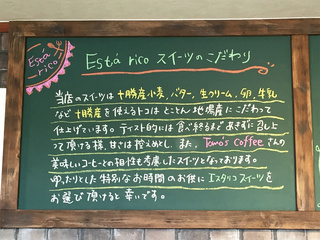 Está
rico
Está rico スイーツのこだわり
当店のスイーツは十勝産小麦、バター、生クリーム、卵、牛乳
など十勝産を使えるトコはとことん地場産にこだわって
仕上げています。テイスト的には食べ終るまであきずに召し上
って頂ける様、甘さは控えめとし、また、Tomo's Coffeeさんの
美味しいコーヒーとの相性も考慮したスイーツとなっております。
ゆったりとした特別なお時間のお供にエスタリコスイーツを
お選び頂けると幸いです。